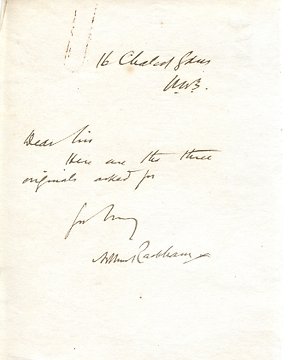 16 Chalcot Gdns
N.W3.
Dear Sir
Here are the three
originals asked for
Arthur Rackham